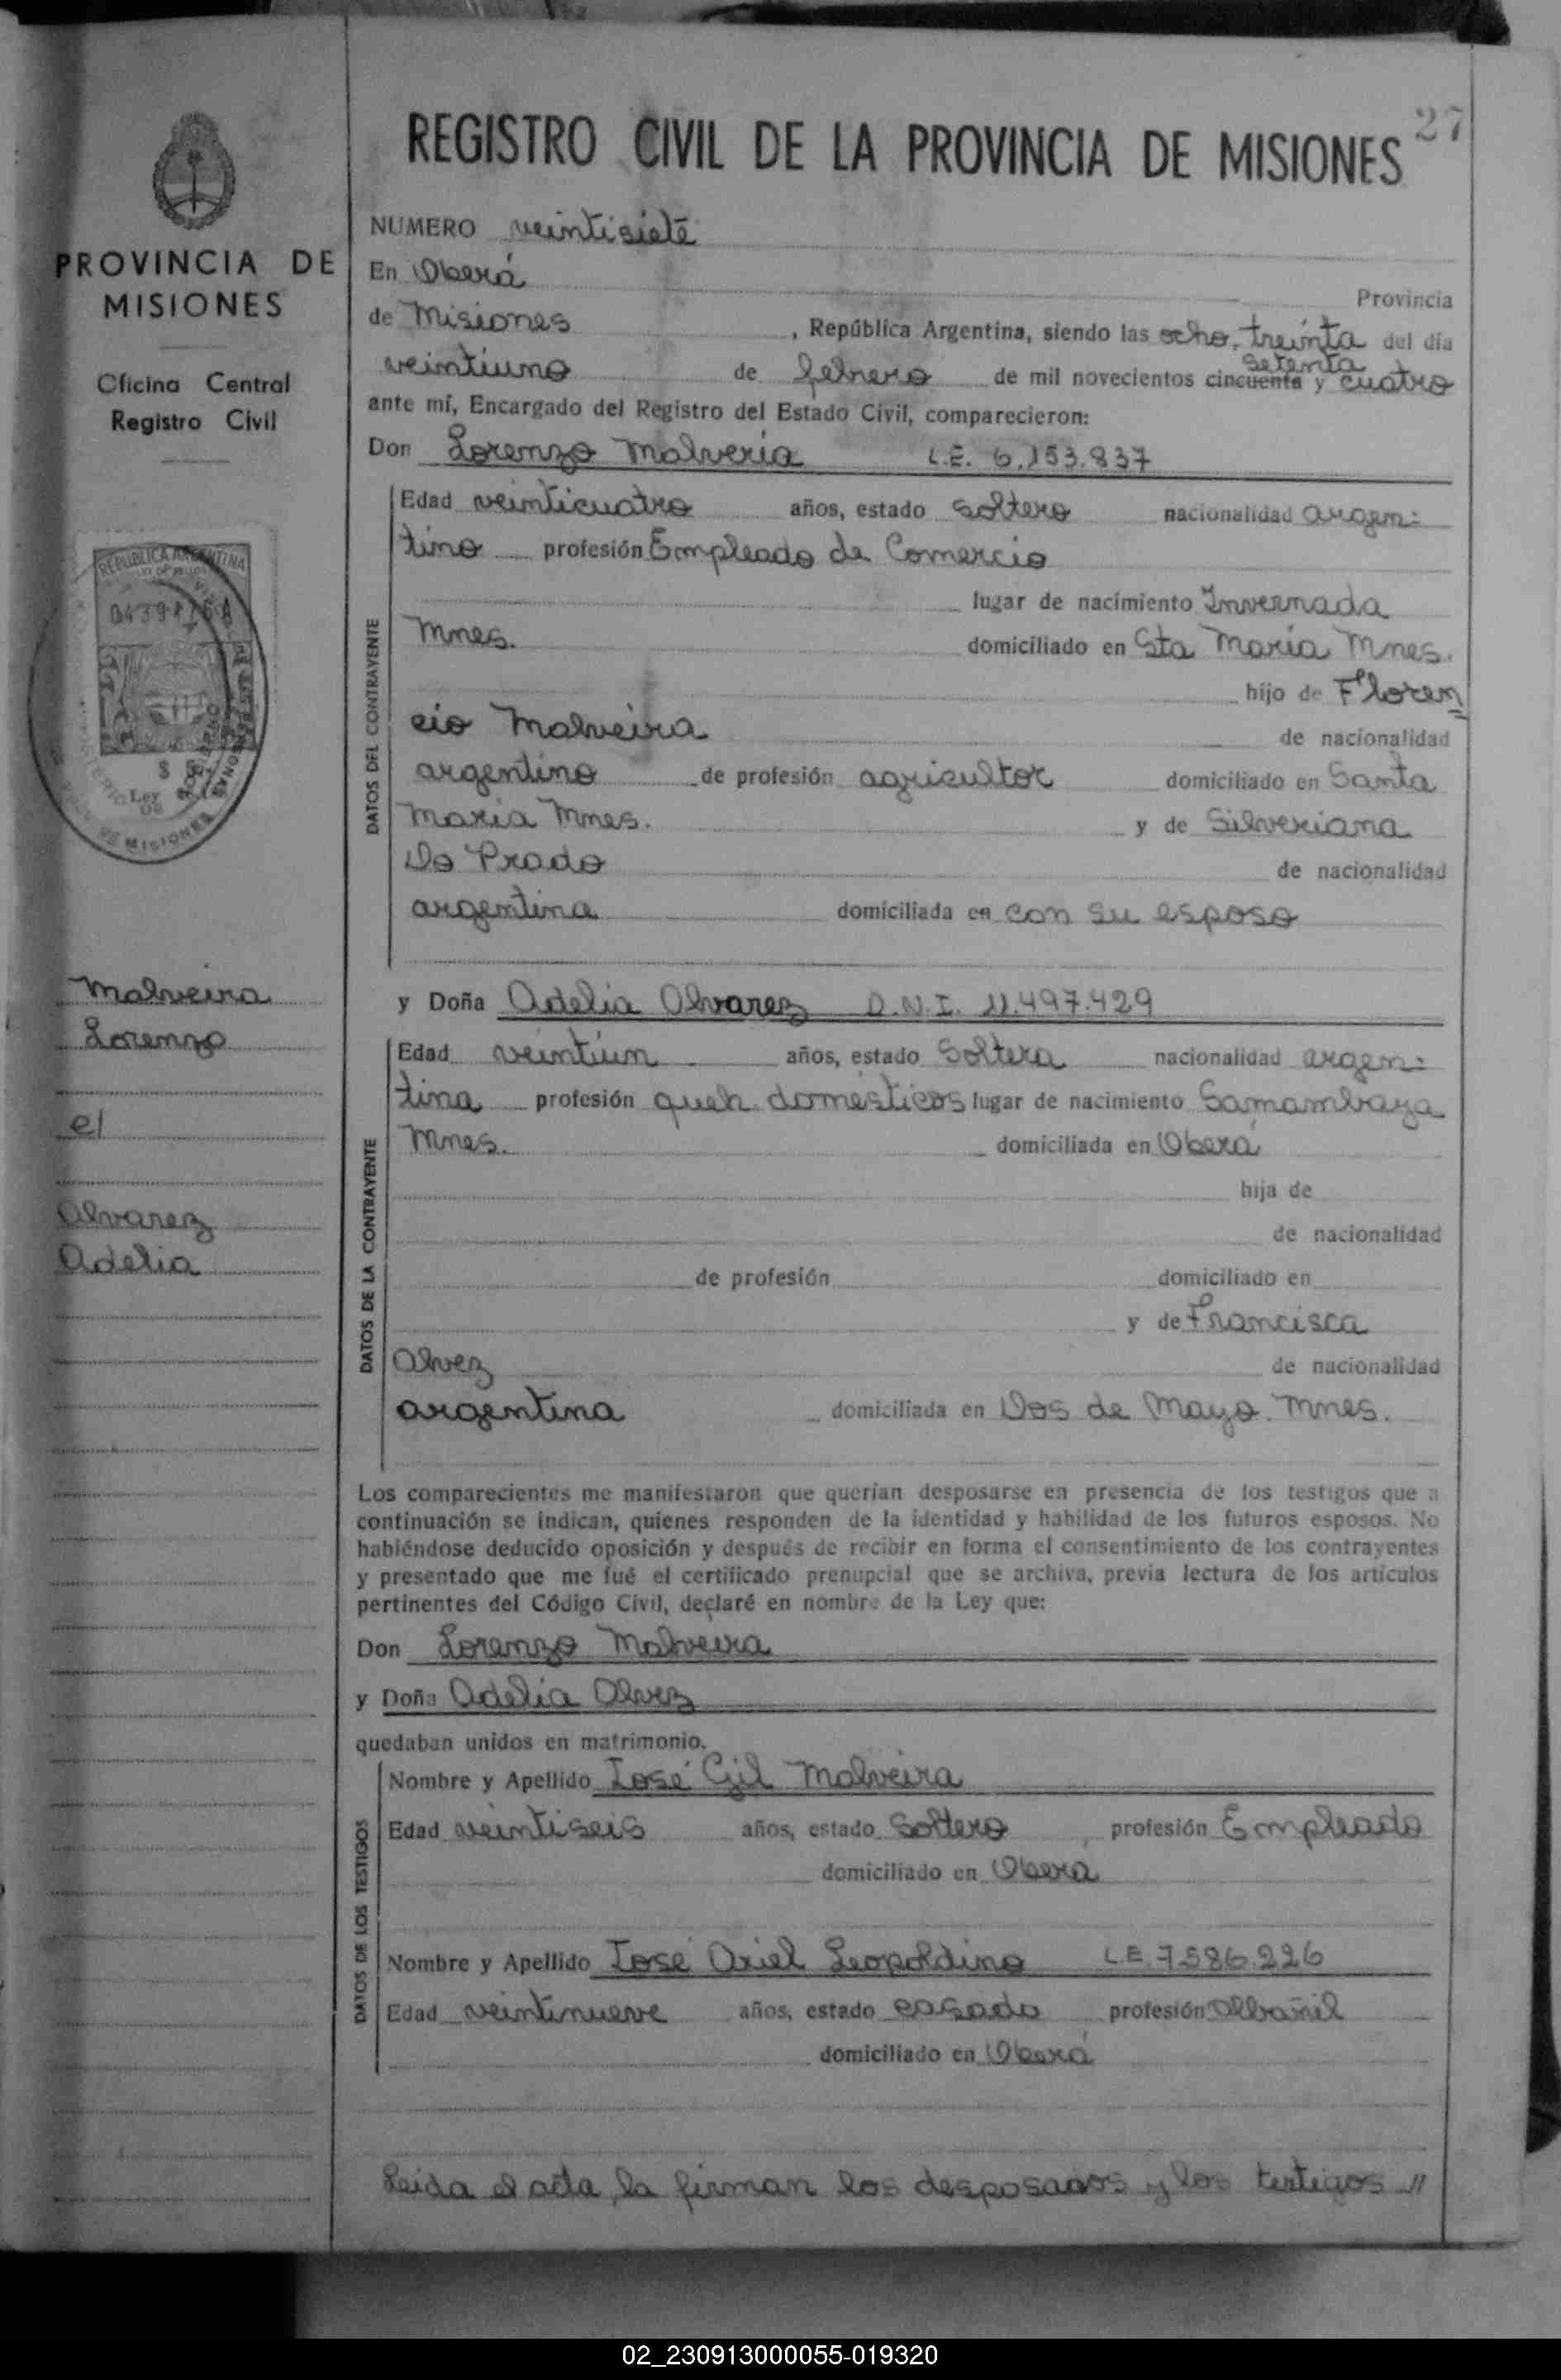 27
REGISTRO CIVIL DE LA PROVINCIA DE MISIONES
PROVINCIA DE
MISIONES
Oficina Central
Registro Civil
REPUBLICA ARGENTINA
Malveira
Lorenzo
el
Alvarez
Adelia
NUMERO veintisiete
En Oberá Provincia
de Misiones , República Argentina, siendo las ocho, treinta del día
setenta
veintiuno de febrero de mil novecientos cincuenta y cuatro
ante mí, Encargado del Registro del Estado Civil, comparecieron:
Don Lorenzo Malveria L.E. 6.153.837
DATOS DEL CONTRAYENTE
Edad veinticuatro años, estado soltero nacionalidad argen:
tino profesión Empleado de Comercio
lugar de nacimiento Invernada
Mnes. domiciliado en Sta Maria Mnes.
hijo de Floren
cio Malveira de nacionalidad
argentino de profesión agricultor domiciliado en Santa
Maria Mnes. y de Silveriana
Do Prado de nacionalidad
argentina domiciliada en con su esposo
y Doña Adelia Alvarez D.N.I. 11.497.429
DATOS DE LA CONTRAYENTE
Edad veintiun años, estado Soltera nacionalidad argen:
tina profesión queh. domésticos lugar de nacimiento Samambaya
Mnes. domiciliada en Oberá
hija de
de nacionalidad
de profesión domiciliado en
y de Francisca
Alvez de nacionalidad
argentina domiciliada en Dos de Mayo. Mnes.
Los comparecientes me manifestaron que querían desposarse en presencia de los testigos que a
continuación se indican, quienes responden de la identidad y habilidad de los futuros esposos. No
habiéndose deducido oposición y después de recibir en forma el consentimiento de los contrayentes
y presentado que me fué el certificado prenupcial que se archiva, previa lectura de los artículos
pertinentes del Código Civil, declaré en nombre de la Ley que:
Don Lorenzo Malveira
y Doña Adelia Alvez
quedaban unidos en matrimonio.
DATOS DE LOS TESTIGOS
Nombre y Apellido José Gil Malveira
Edad veintiseis años, estado Soltero profesión Empleado
domiciliado en Oberá
Nombre y Apellido José Ariel Leopoldino L.E. 7.586.226
Edad veintinueve años, estado casado profesión Albañil
domiciliado en Oberá
Leida el acta, la firman los desposados y los testigos //
02_230913000055-019320